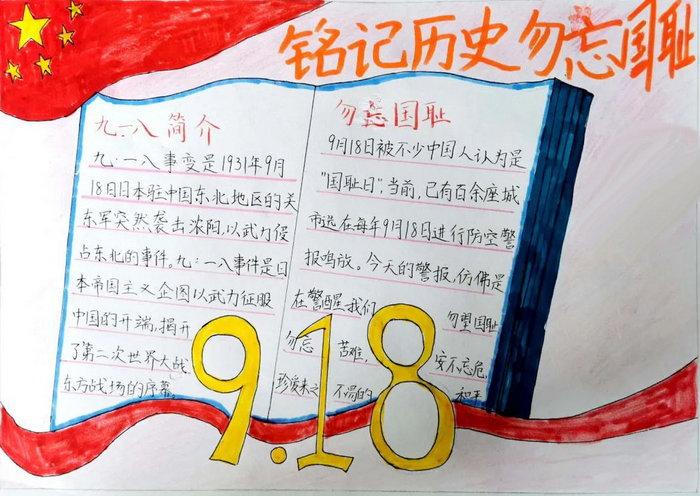 铭记历史勿忘国耻
九·一八 简介
九·一八事变是1931年9月
18日日本驻中国东北地区的关
东军突然袭击沈阳,以武力侵
占东北的事件。九·一八事件是日
本帝国主义企图以武力征服
中国的开端,揭开
了第二次世界大战
东方战场的序幕。
勿忘国耻
9月18日被不少中国人认为是
"国耻日".当前,已有百余座城
市选在每年9月18日进行防空警
报鸣放。今天的警报,仿佛是
在警醒我们 勿 国耻
勿忘 苦难, 安不忘危,
珍爱来之 不易的 和平
9.18